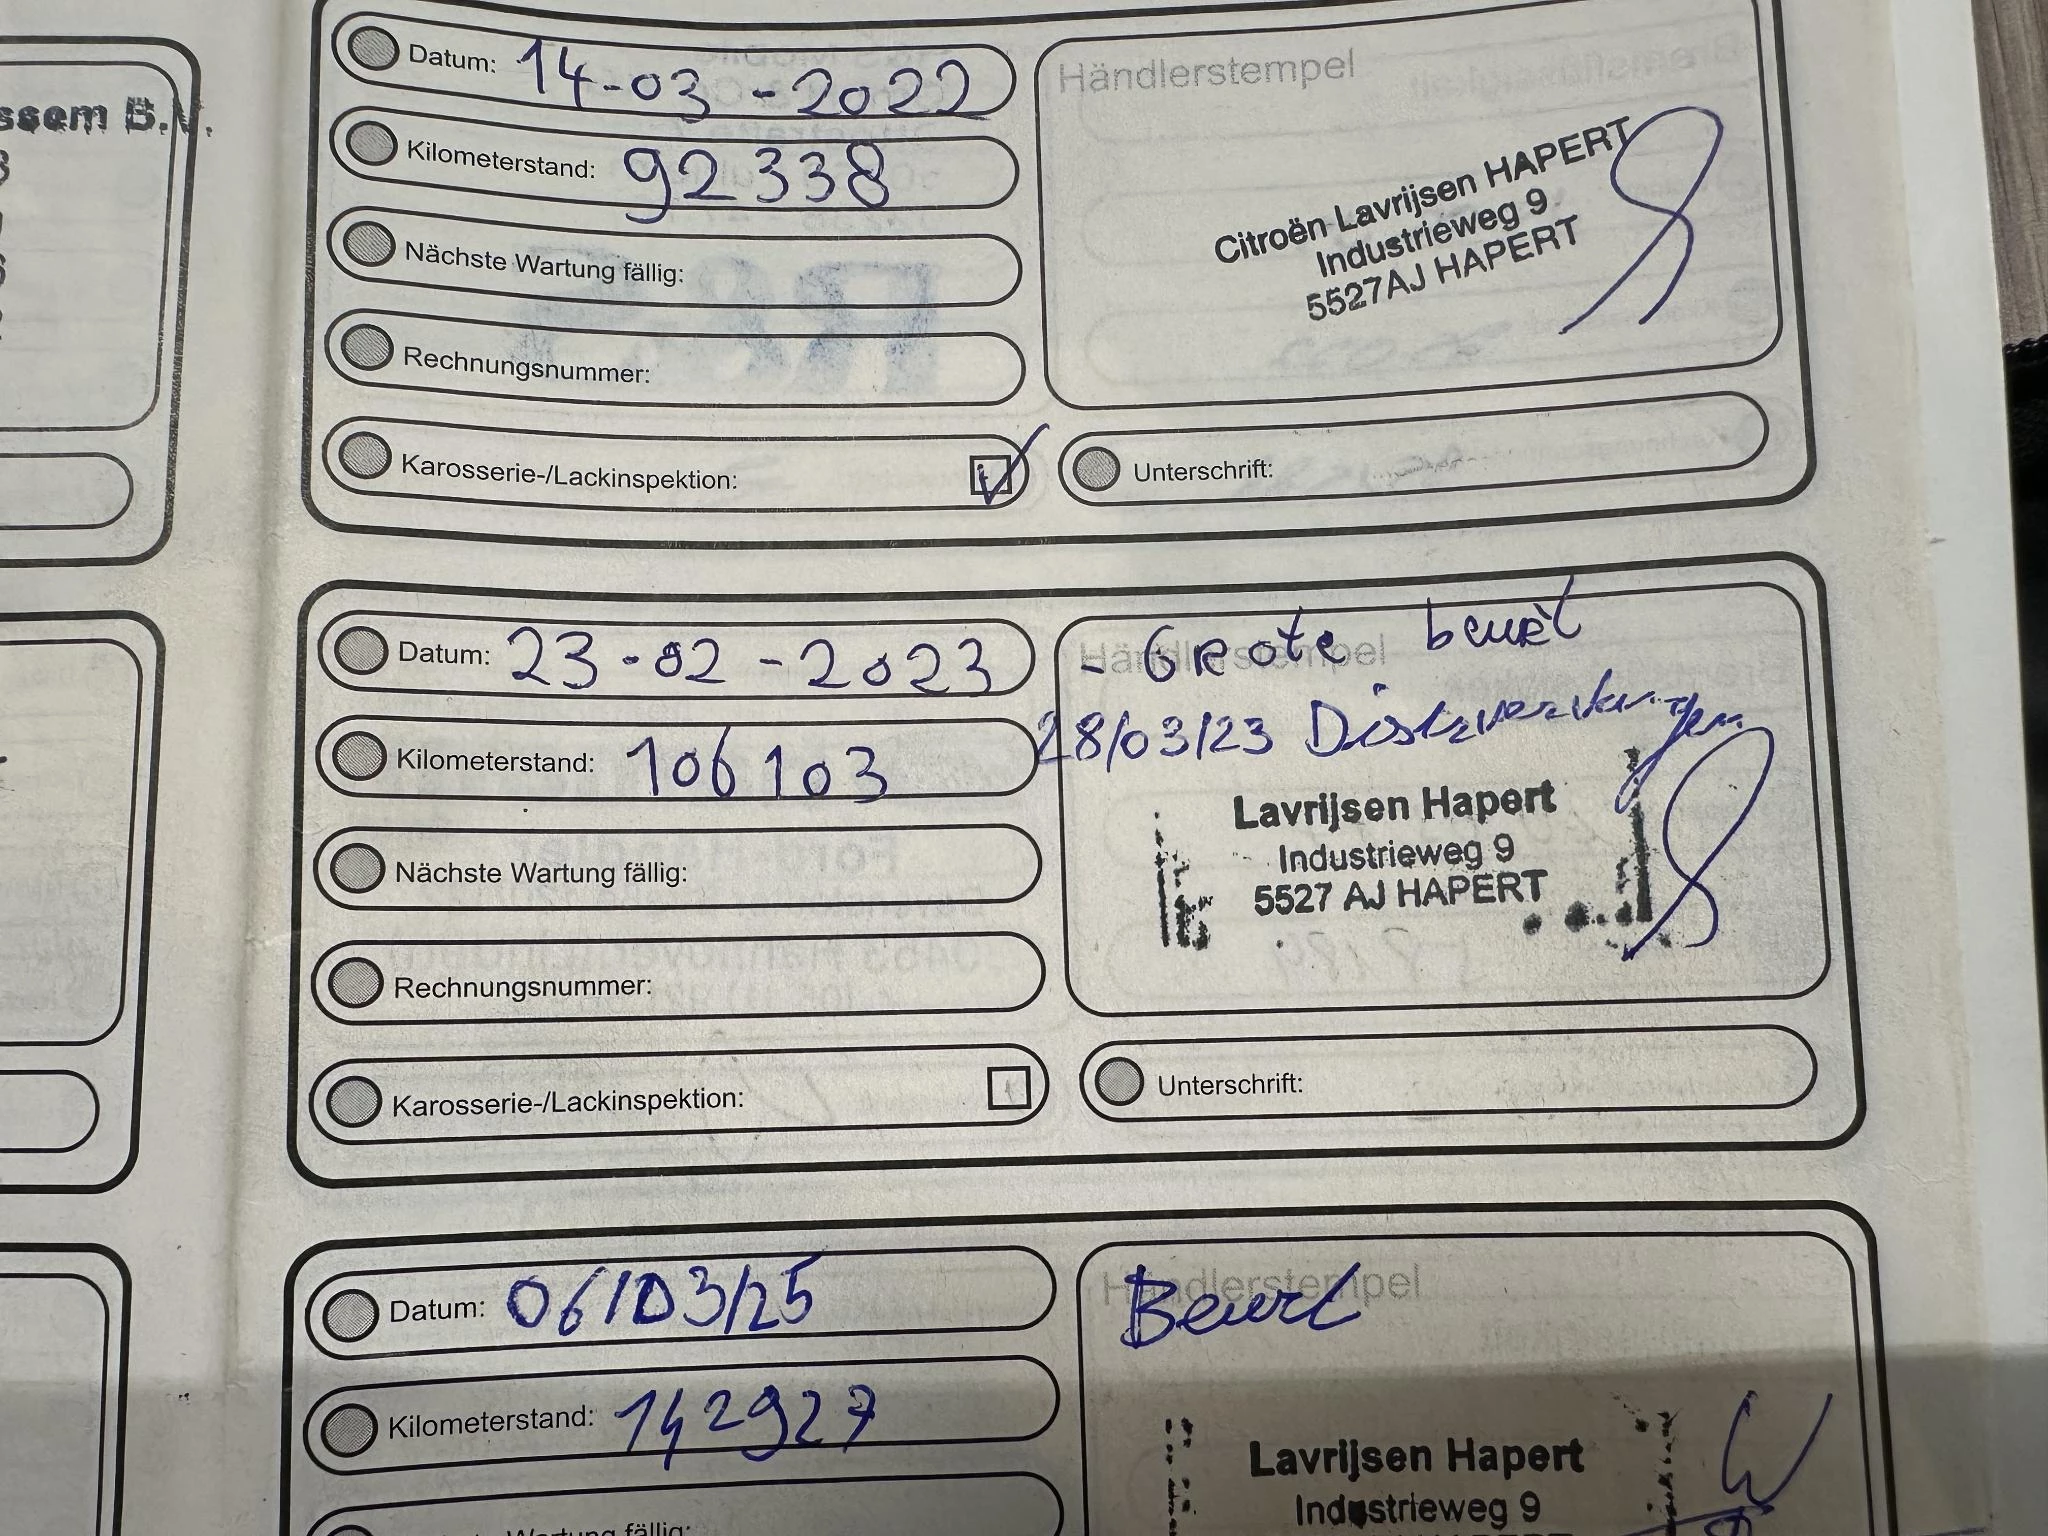 ssem B.V.
Datum: 14-03-2022
Kilometerstand: 92338
Nächste Wartung fällig:
Rechnungsnummer:
Karosserie-/Lackinspektion:
Händlerstempel
Citroën Lavrijsen HAPERT
Industrieweg 9
5527AJ HAPERT
Unterschrift:
Datum: 23-02-2023
Kilometerstand: 106103
Nächste Wartung fällig:
Rechnungsnummer:
Karosserie-/Lackinspektion:
Händlerstempel
- GRote beurt
28/03/23
Lavrijsen Hapert
Industrieweg 9
5527 AJ HAPERT
Unterschrift:
Datum: 06/03/25
Kilometerstand: 142927
Wartung fällig:
Händlerstempel
Beurt
Lavrijsen Hapert
Industrieweg 9